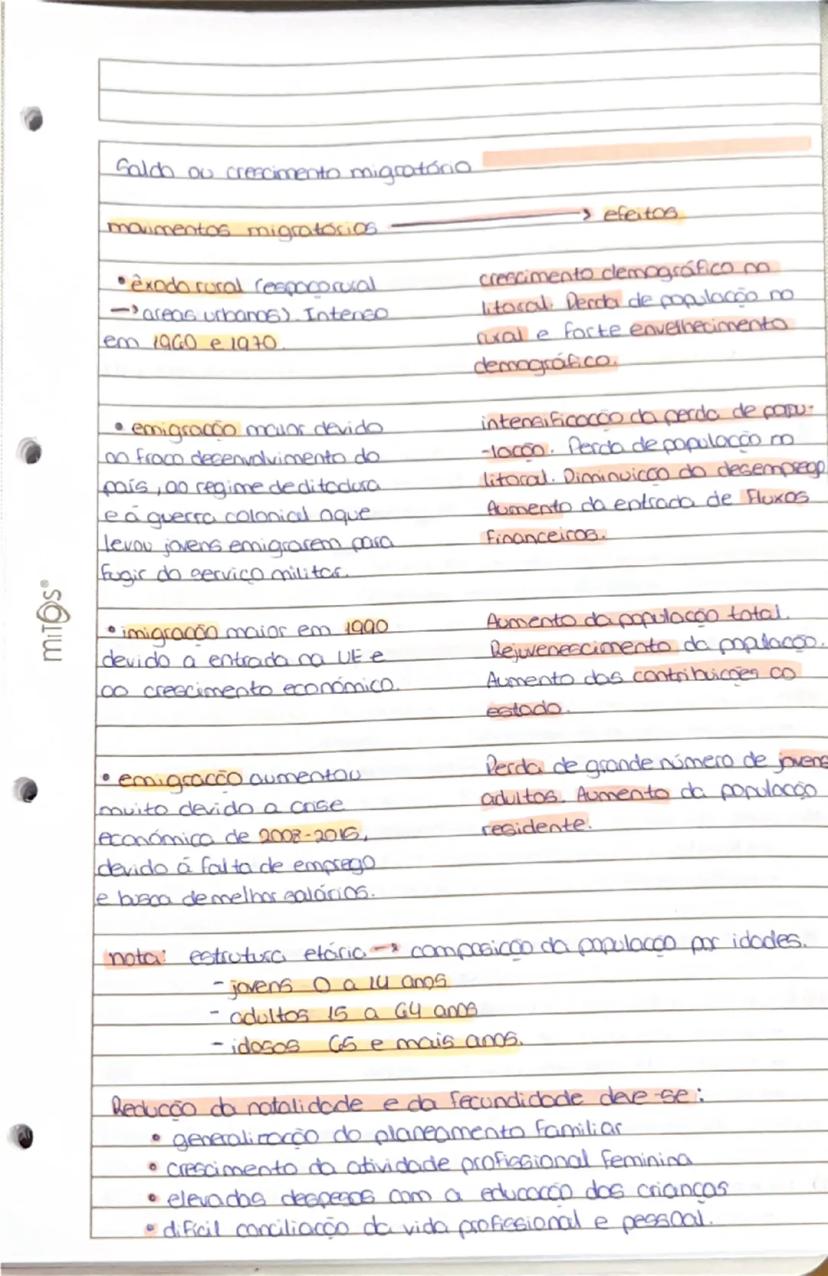 Saldo ou crescimento migratório
movimentos migratórios → efeitos
• êxodo rural (espaço rural
→ areas urbanos). Intenso
em 1960 e 1970.
crescimento demográfico no
litoral. Perda de população no
rural e forte envelhecimento
demográfico.
• emigração maior devido
ao fraco desenvolvimento do
país, ao regime de ditadura
e á guerra colonial oque
levou jovens emigrarem para
fugir do serviço militar.
intensificação da perda de popu-
-lação. Perda de população no
litoral. Diminuição do desemprego
Aumento da entrada de fluxos
financeiros.
• imigração maior em 1990
devido a entrada na UE e
ao crescimento económico.
Aumento da população total.
Rejuvenescimento da população.
Aumento das contribuições ao
estado.
• emigração aumentou
muito devido a crise
económica de 2008-2015,
devido á falta de emprego
e busca de melhor salários.
Perda de grande número de jovens
adultos. Aumento da população
residente.
nota: estrutura etária → composição da população por idades.
- jovens 0 a 14 anos
- adultos 15 a 64 anos
- idosos 65 e mais anos.
Redução da natalidade e da fecundidade deve-se:
• generalização do planeamento familiar
• crescimento da atividade profissional feminina
• elevadas despesas com a educação das crianças
• dificil conciliação da vida profissional e pessoal.
miTOs®